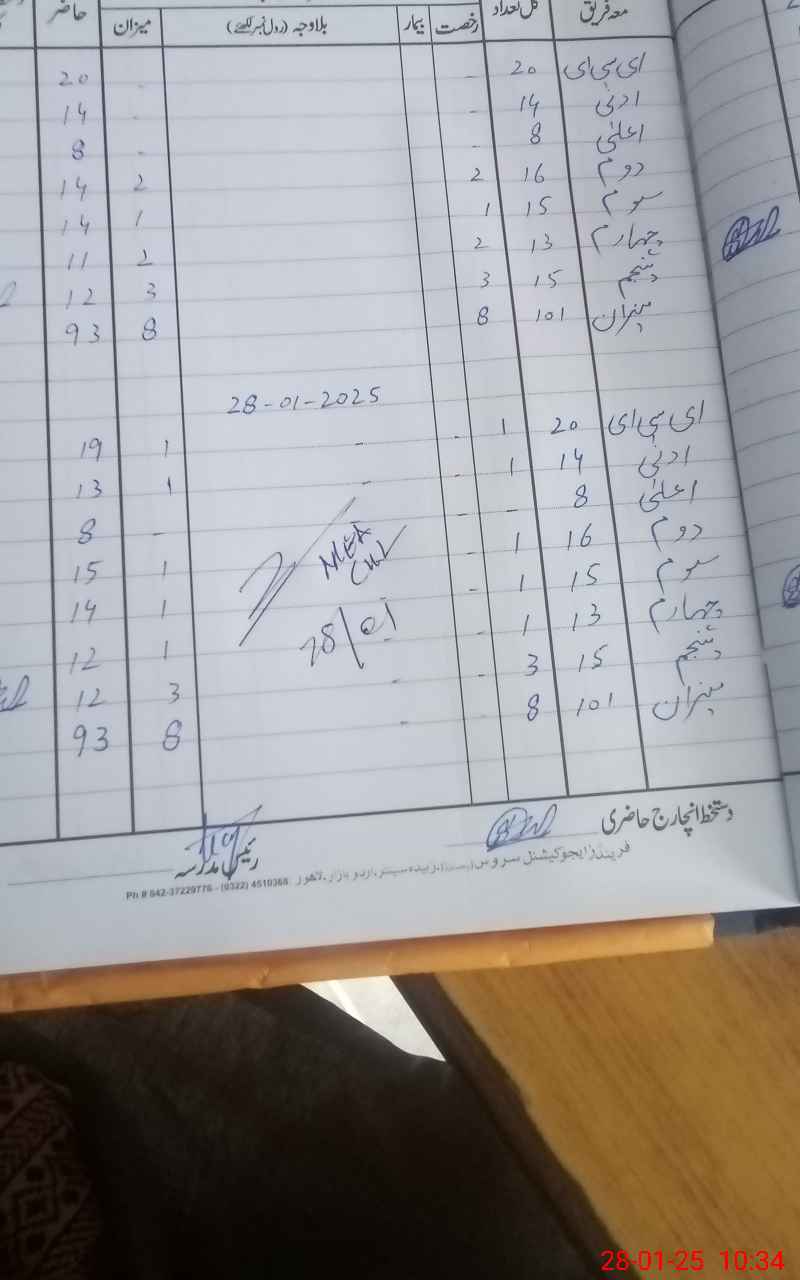 معہ فریق کل تعداد رخصت بیمار بلاوجہ (رول نمبر لکھئے) میزان حاضر
ای سی ای 20 - - 20
ادنیٰ 14 - - 14
اعلیٰ 8 - - 8
دوم 16 2 2 14
سوم 15 1 1 14
چہارم 13 2 2 11
پنجم 15 3 3 12
میزان 101 8 8 93
28-01-2025
ای سی ای 20 1 - - 1 19
ادنیٰ 14 1 - - 1 13
اعلیٰ 8 - - - 8
دوم 16 1 - 1 15
سوم 15 1 - 1 14
چہارم 13 1 - 1 12
پنجم 15 3 - - 3 12
میزان 101 8 - - 8 93
MEA
28/01
دستخط انچارج حاضری
رئیس مدرسہ
فرینڈز ایجوکیشنل سروس زبیدہ سینٹر، اردو بازار، لاہور
Ph # 042-37229776 - (0322) 4510368
28-01-25 10:34